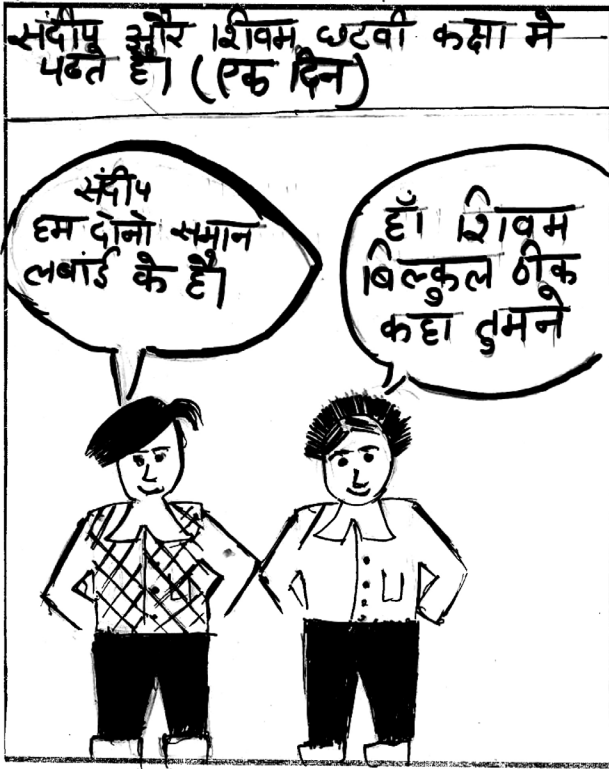 संदीप और शिवम छटवी कक्षा मे
पढते है। (एक दिन)
संदीप
हम दोनो समान
लबांई के है।
हाँ शिवम
बिल्कुल ठीक
कहा तुमने